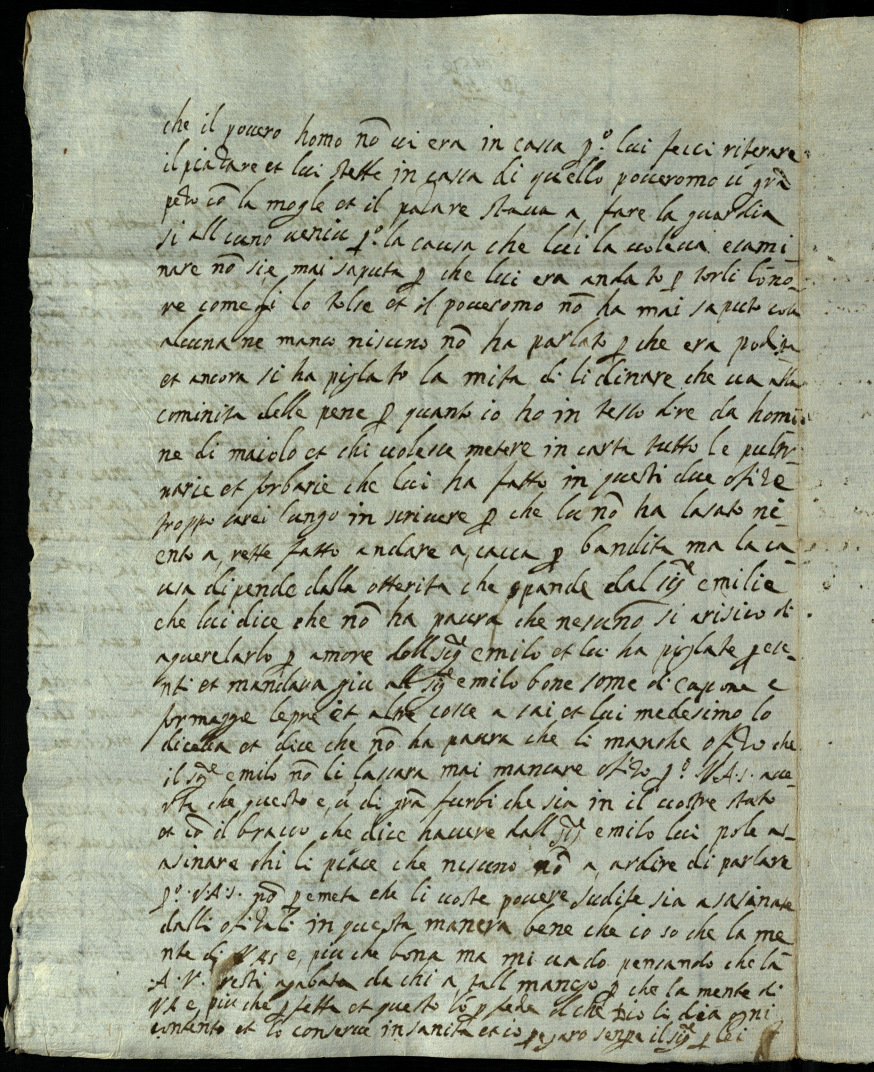 che il povero homo nõ vi era in casca p.º lui fecci ritirare
il piatare et lui stette in casca di quello poveromo ũ grã
pezo cõ la mogle et il stava a, fare la guardia
si allcuno veniva p.º la causa che lui la voleva ecami-
nare nõ si e mai saputa p che lui era andato p torli l'ono-
re come gi lo tolse et il poveromo nõ ha mai saputo
alcuna ne manco niscuno nõ ha parlato p che era
et ancora si ha piglato la mita di li dinare che va alla
cominita delle pene p quanto io ho in tesco dire da homi-
ne di maiolo et chi volesce metere in carta tutto le
narie et forbarie che lui ha fatto in questi due
troppo sarei lungo in scrivere p che lui nõ ha lasato nĩ-
ente a, fatto andare a, cacca p bandita ma la ca-
usa dipende dalla otterita che spande dal sig.re emilie
che lui dice che nõ ha paura che nescuno si arisico di
aquerelarlo p amore dell sig.re emilo et lui ha piglate p ese-
nti et mandava giu all sig.re emilo bone some di capona e
formagge lepre et altre cosce a sai et lui medesimo lo
diceva et dice che nõ ha paura che li manche ofitio che
il sig.re emilo nõ li lascara mai mancare ofitio p.º V.A.S. ave-
rta che questo e, ũ di grã furbi che sia in il vostre stato
et cõ il bracco che dice havere dall sig.re emilo lui pole as-
asinare chi li piace che niscuno nõ a, ardire di parlare
p.º V.A.S. nõ p emeta che li voste povere sudite sia asasinate
dalli ofitiali in questa manera bene che io so che la me
nte di VAS e, piu che bona ma mi vado pensando che la
A.V. resti agabata da chi a tall p che la mente di
VA e, piu che p fetta et questo che Dio li dia ogni
contento et lo conserve in sanita et io p egaro senpre il sig.re p lei